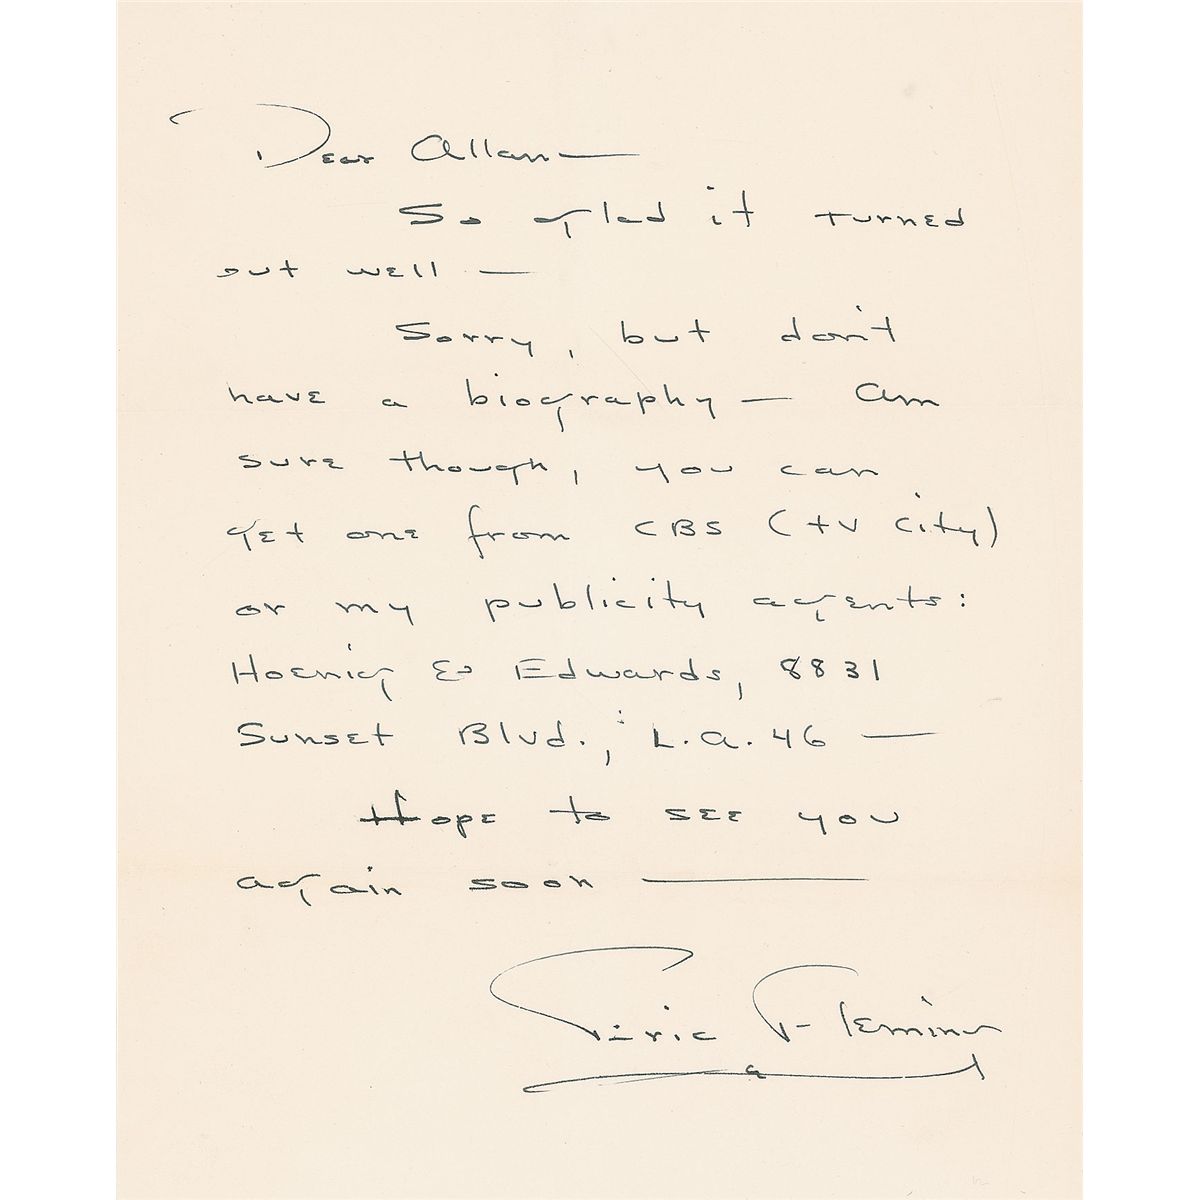 Dear Allan —
So glad it turned
out well —
Sorry, but don't
have a biography — Am
sure though, you can
get one from CBS (TV City)
or my publicity agents:
Hoenig & Edwards, 8831
Sunset Blvd., L.A. 46 —
Hope to see you
again soon —
Eric Fleming